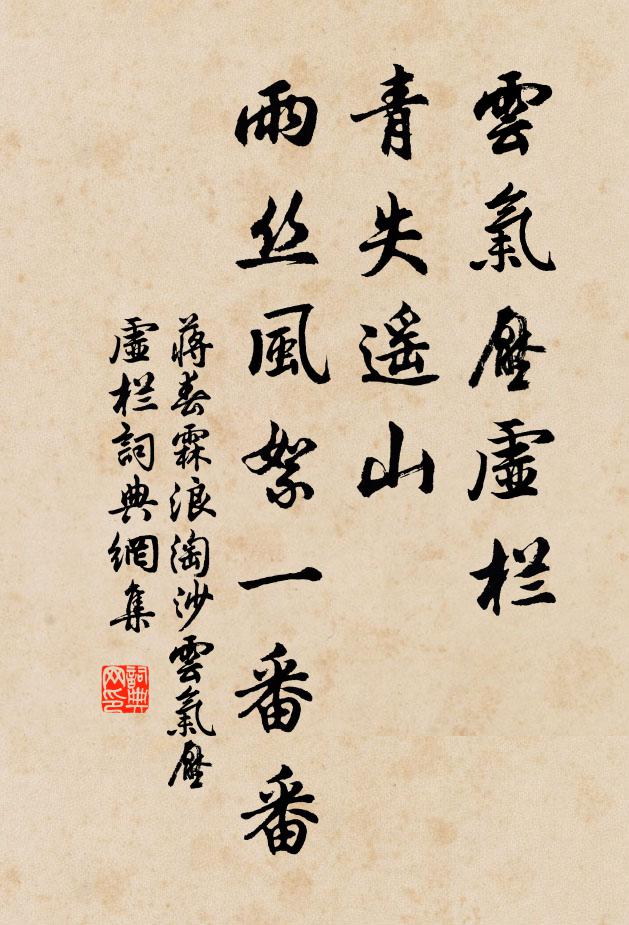 雲氣壓虛栏
青失遥山
雨丝風絮一番番
蔣春霖浪淘沙雲氣壓
虛栏詞典網集
詞典网印